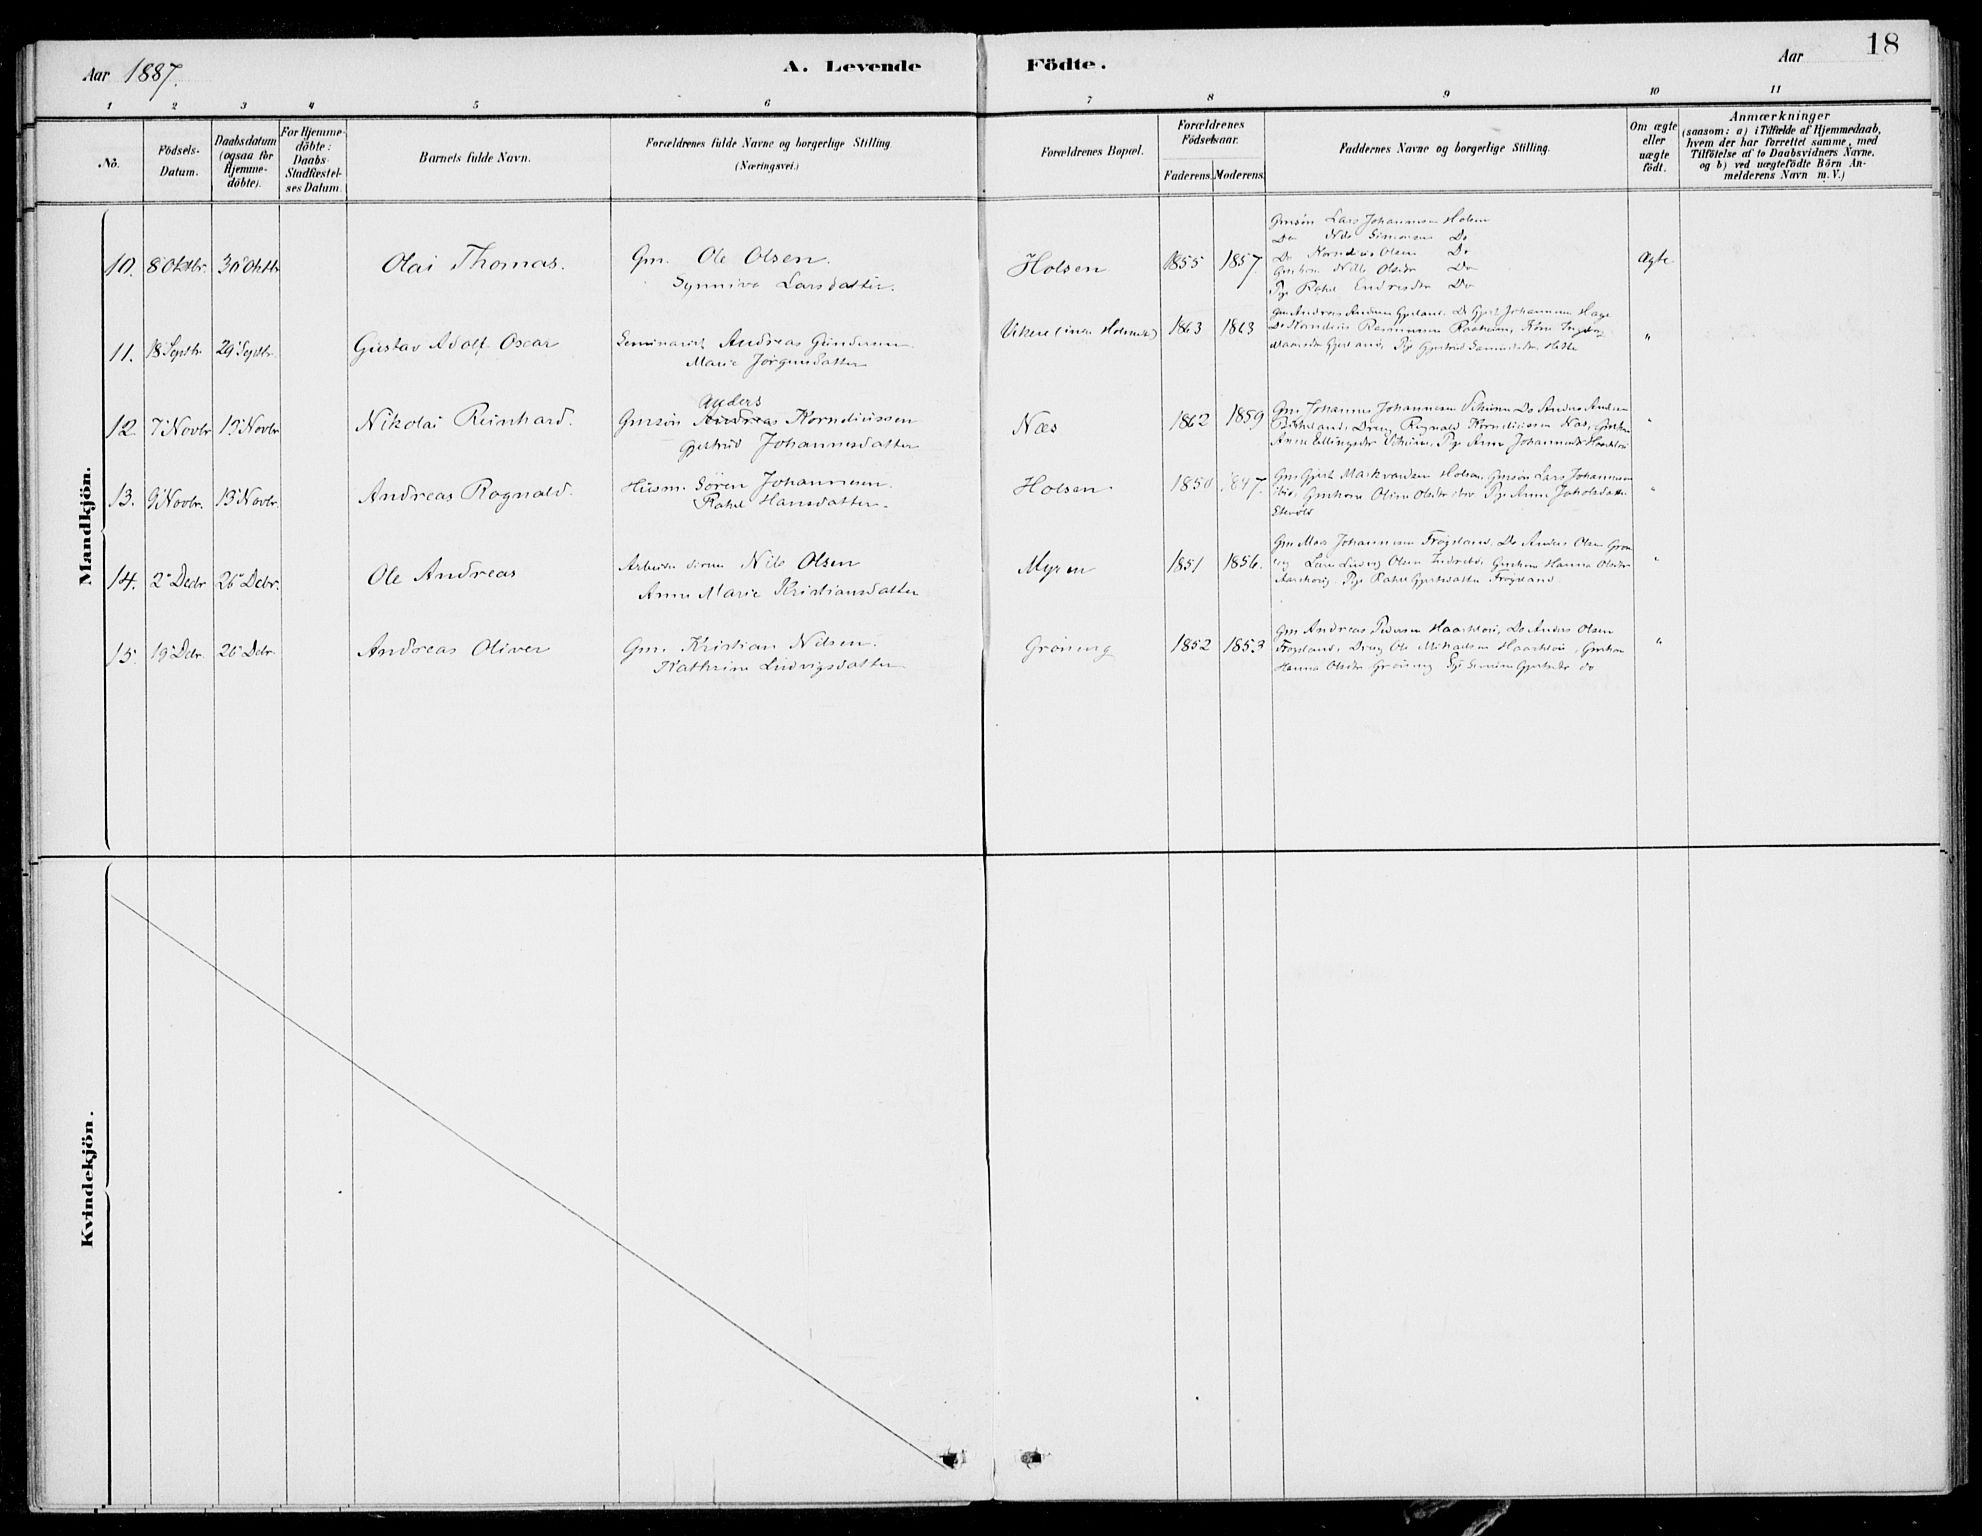 18
Aar 1887.
A. Levende Födte.
Aar
1 2 3 4 5 6 7 8 9 10 11
No.
Födsels-
Datum.
Daabsdatum
(ogsaa for
Hjemme-
döbte).
For Hjemme-
döbte:
Daabs-
Stadfæstel-
ses Datum.
Barnets fulde Navn.
Forældrenes fulde Navne og borgerlige Stilling
(Næringsvei.)
Forældrenes Bopæl.
Forældrenes
Födselsaar.
Faderens. Moderens.
Faddernes Navne og borgerlige Stilling.
Om ægte
eller
uægte
födt.
Anmærkninger
(saasom: a) i Tilfælde af Hjemmedaab,
hvem der har forrettet samme, med
Tilföielse af to Daabsvidners Navne,
og b) ved uægtefödte Börn An-
melderens Navn m. V.)
Mandkjön.
10. 8 Oktbr. 30 Oktbr Olai Thomas. Gm. Ole Olsen.
Synnive Larsdatter.
Holsen 1855 1857
Gmsøn Lars Johannesen Holsen
Do Nils Simonsen Do
Do Kornelius Olsen Do
Gmkone Nille Olsdtr Do
Pige Rakel Endresdtr Do
Ægte
11. 18 Septbr 29 Septbr. Gustav Adolf Oscar Seminarist Andreas Gundersen
Marie Jørgensdatter
1863 1863
Gm Andreas Andersen Gjesland, Do Gjert Johannesen Hage
Do Kornelius Rasmussen
"
12. 7 Novbr 13 Novbr. Nikolai Reinhard. Gmsøn Anders Korneliussen
Andreas
Gjertrud Johannesdatter
Næs 1862 1859
Gm. Johannes Johannesen Do Anders Andersen
Dreng Rognald Korneliussen Næs, Gmkone
Anna Ellingsdtr Pige Anne Johannesdtr
"
13. 9 Novbr. 13 Novbr. Andreas Rognald. Husm. Søren Johannesen.
Rakel Hansdatter.
Holsen. 1850 1847.
Gm Gjert Markvardsen Holsen, Gmsøn Lars Johannesen
ibid, Gmkone Oline Olsdtr ibid Pige Anne Jakobsdatter
"
14. 2 Decbr 26 Decbr. Ole Andreas Nils Olsen
Anne Marie Kristiansdatter
Myren 1851 1856.
Gm Mons Johannesen Frøysland, Do Anders Olsen Grön
ing Lars Ludvig Olsen Gmkone Hanna Olsdtr
Pige Rakel Gjertsdatter Frøysland
"
15. 19 Decbr. 26 Decbr Andreas Oliver Gm. Kristian Nilsen.
Kathrine Ludvigsdatter
Gröning 1852 1853
Gm Andreas Pedersen Haarklou, Do Anders Olsen
Frøysland, Dreng Ole Mikaelsen Haarklou, Gmkone
Hanna Olsdtr Gröning Pige Gjertsdtr do
"
Kvindekjön.